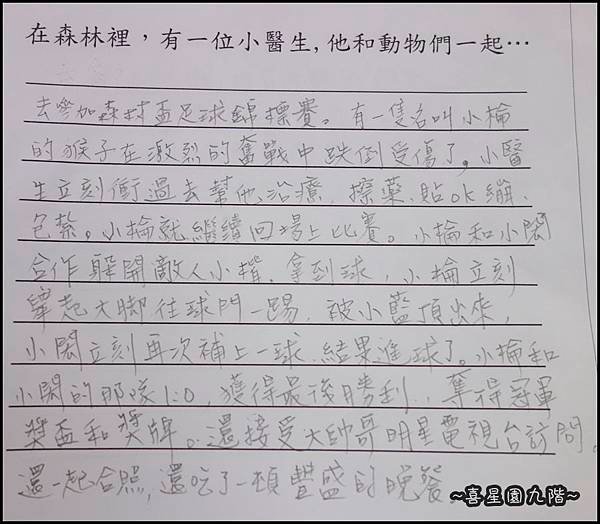 在森林裡，有一位小醫生，他和動物們一起…
去參加森林盃足球錦標賽。有一隻名叫小棆
的猴子在激烈的奮戰中跌倒受傷了。小醫
生立刻衝過去幫他治療，擦藥、貼ok繃、
包紮。小棆就繼續回場上比賽。小棆和小閎
合作躲開敵人小楷，拿到球，小棆立刻
舉起大腳往球門一踢，被小藍頂出來，
小閎立刻再次補上一球，結果進球了。小棆和
小閎的那隊1:0，獲得最後勝利，奪得冠軍
獎盃和獎牌。還接受大帥哥明星電視台訪問。
還一起合照，還吃了一頓豐盛的晚餐
~喜星園九階~